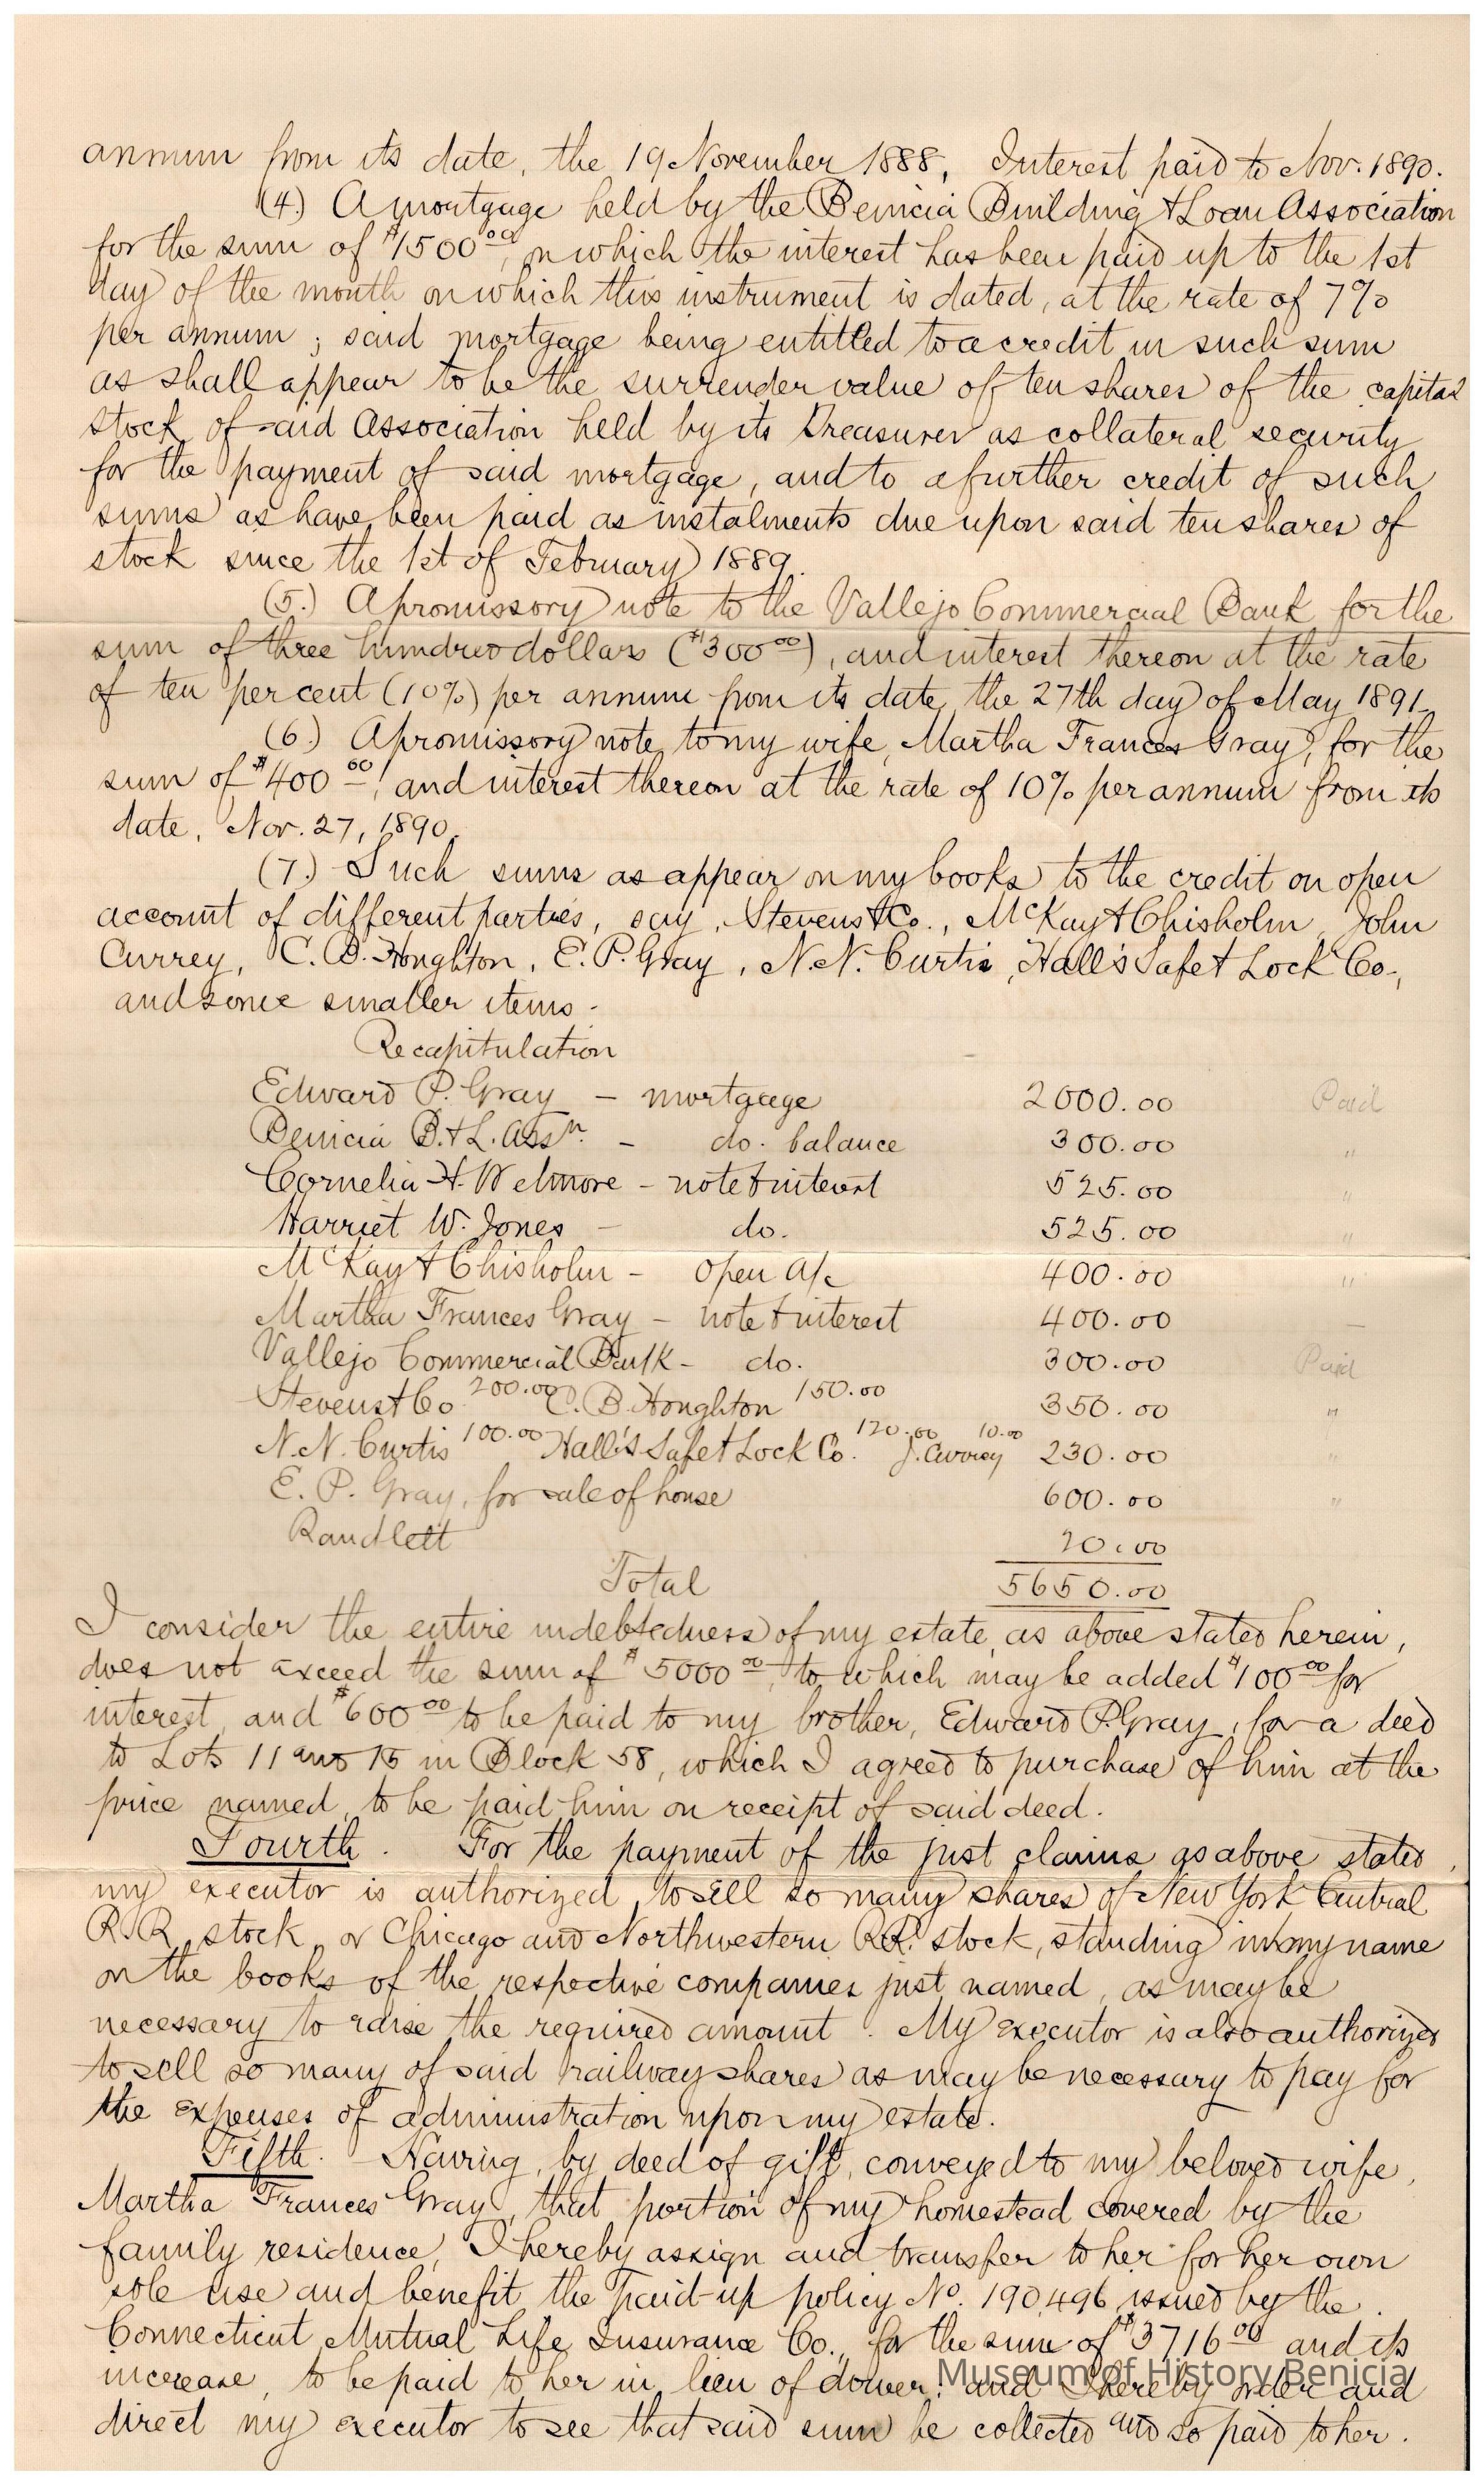 annum from its date, the 19 November 1888, Interest paid to Nov. 1890.
(4.) A mortgage held by the Benicia Building & Loan Association
for the sum of $1500.00, on which the interest has been paid up to the 1st
day of the month on which this instrument is dated, at the rate of 7%
per annum; said mortgage being entitled to a credit in such sum
as shall appear to be the surrender value of ten shares of the capital
stock of said Association held by its Treasurer as collateral security
for the payment of said mortgage, and to a further credit of such
sums as have been paid as instalments due upon said ten shares of
stock since the 1st of February 1889.
(5.) A promissory note to the Vallejo Commercial Bank for the
sum of three hundred dollars ($300 00), and interest thereon at the rate
of ten per cent (10%) per annum from its date, the 27th day of May 1891.
(6.) A promissory note to my wife, Martha Frances Gray, for the
sum of $400 00, and interest thereon at the rate of 10% per annum from its
date, Nov. 27, 1890.
(7.) Such sums as appear on my books to the credit on open
account of different parties, say, Stevens & Co., McKay & Chisholm, John
Currey, C. B. Houghton, E. P. Gray, N. N. Curtis, Hall's Safe & Lock Co.,
and some smaller items.
Recapitulation
Edward P. Gray — mortgage 2000.00 Paid
Benicia B. & L. Assn. — do. balance 300.00 "
Cornelia H. Wetmore — note & interest 525.00 "
Harriet W. Jones — do. 525.00 "
McKay & Chisholm — open a/c 400.00 "
Martha Frances Gray — note & interest 400.00 —
Vallejo Commercial Bank — do. 300.00 Paid
Stevens & Co 200.00 C. B. Houghton 150.00 350.00 "
N. N. Curtis 100.00 Hall's Safe & Lock Co. 120.00 J. Currey 10.00 230.00 "
E. P. Gray, for sale of house 600.00 "
Randlett 20.00
Total 5650.00
I consider the entire indebtedness of my estate, as above stated herein,
does not exceed the sum of $5000 00, to which may be added $100 00 for
interest, and $600 00 to be paid to my brother, Edward P. Gray, for a deed
to Lots 11 and 15 in Block 58, which I agreed to purchase of him at the
price named, to be paid him on receipt of said deed.
Fourth. For the payment of the just claims as above stated,
my executor is authorized to sell so many shares of New York Central
R.R. stock, or Chicago and Northwestern R.R. stock, standing in my name
on the books of the respective companies just named, as may be
necessary to raise the required amount. My executor is also authorized
to sell so many of said railway shares as may be necessary to pay for
the expenses of administration upon my estate.
Fifth. Having, by deed of gift, conveyed to my beloved wife,
Martha Frances Gray, that portion of my homestead covered by the
family residence, I hereby assign and transfer to her for her own
sole use and benefit the paid-up policy No. 190,496 issued by the
Connecticut Mutual Life Insurance Co., for the sum of $3716 00 and its
increase, to be paid to her in lieu of dower: and I hereby order and
direct my executor to see that said sum be collected and so paid to her.
Museum of History Benicia